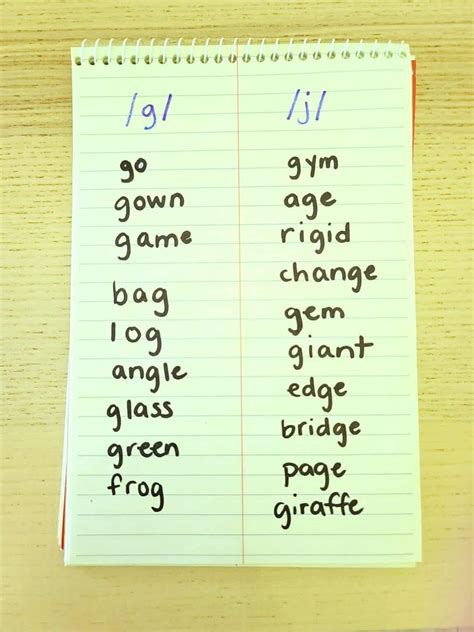 /g/ /j/
go gym
gown age
game rigid
change
bag gem
log giant
angle edge
glass bridge
green page
frog giraffe